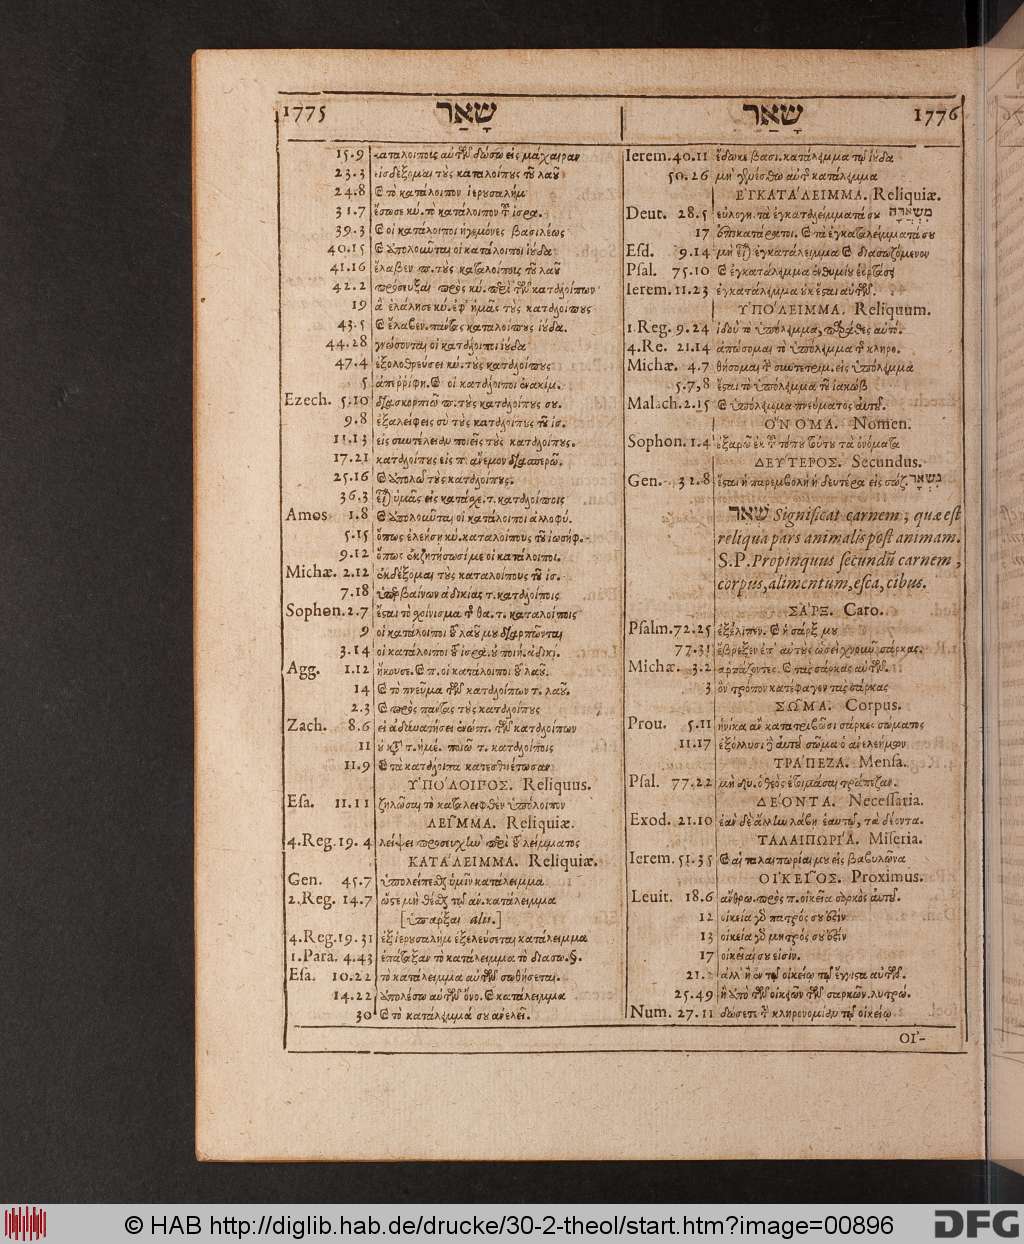 1775 שָׁאַר
15.9 καταλοίποις αὐτῶν δώσω εἰς μάχαιραν
23.3 εἰσδέξομαι τοὺς καταλοίπους τοῦ λαοῦ
24.8 τὸ κατάλοιπον ἱερουσαλήμ
31.7 ἔσωσε κύ. τὸ κατάλοιπον τοῦ ἰσρα.
39.3 οἱ κατάλοιποι ἡγεμόνες βασιλέως
40.15 ἀπολοῦνται οἱ κατάλοιποι ἰούδα
41.16 ἔλαβεν π. τοὺς καταλοίποις τοῦ λαοῦ
42.2 πρόσευξαι πρὸς κύ. περὶ τῶν καταλοίπων
19 ἃ ἐλάλησε κύ. ἐφ' ἡμᾶς τοὺς καταλοίπους
43.5 ἔλαβεν πάντας καταλοίπους ἰούδα.
44.28 γνώσονται οἱ κατάλοιποι ἰούδα
47.4 ἐξολοθρεύσει κύ. τοὺς καταλοίπους
5 ἀπερρίφη. οἱ κατάλοιποι ἐνακίμ.
Ezech. 5.10 διασκορπιῶ π. τοὺς καταλοίπους σου.
9.8 ἐξαλείφεις σὺ τοὺς καταλοίπους τοῦ ἰσ.
11.13 εἰς συντέλειαν ποιεῖς τοὺς καταλοίπους.
17.21 καταλοίπους εἰς π. ἄνεμον διασπερῶ.
25.16 ἀπολῶ τοὺς καταλοίπους.
36.3 ὑμᾶς εἰς κατάσχε. τ. καταλοίποις
Amos 1.8 ἀπολοῦνται οἱ κατάλοιποι ἀλλοφύ.
5.15 ὅπως ἐλεήσῃ κύ. καταλοίπους τοῦ ἰωσήφ.
9.12 ὅπως ἐκζητήσωσί με οἱ κατάλοιποι.
Michæ. 2.12 ἐκδέξομαι τοὺς καταλοίπους τοῦ ἰσ.
7.18 ὑπερβαίνων ἀδικίας τ. καταλοίποις
Sophon. 2.7 ἔσται τὸ χοίνισμα τῆς θα. τ. καταλοίποις
9 οἱ κατάλοιποι τοῦ λαοῦ μου διαρπῶνται
3.14 οἱ κατάλοιποι τοῦ ἰσρα. οὐ ποιή. ἀδικί.
Agg. 1.12 ἤκουσε. π. οἱ κατάλοιποι τοῦ λαοῦ.
14 τὸ πνεῦμα τῶν καταλοίπων τ. λαοῦ.
2.3 πρὸς πάντας τοὺς καταλοίπους
Zach. 8.6 εἰ ἀδυνατήσει ἐνώπ. τῶν καταλοίπων
11 οὐ κατὰ τ. ἡμέ. ποιῶ τ. καταλοίποις
11.9 τὰ κατάλοιπα κατεσθιέτωσαν
ΥΠΟ'ΛΟΙΠΟΣ. Reliquus.
Esa. 11.11 ζηλῶσαι τὸ καταλειφθὲν ὑπόλοιπον
ΛΕΙ͂ΜΜΑ. Reliquiæ.
4.Reg. 19.4 λείψει προσευχὴν περὶ τοῦ λείμματος
ΚΑΤΑ'ΛΕΙΜΜΑ. Reliquiæ.
Gen. 45.7 ὑπολείπεσθαι ὑμῖν κατάλειμμα
2.Reg. 14.7 ὥστε μὴ θέσθαι τῷ ἀν. κατάλειμμα
[ὑπαρξαι aliι.]
4.Reg. 19.31 ἐξ ἱερουσαλὴμ ἐξελεύσεται κατάλειμμα
1.Para. 4.43 ἐπάταξαν τὸ κατάλειμμα τὸ διασω.
Esa. 10.22 τὸ κατάλειμμα αὐτῶν σωθήσεται.
14.22 ἀπολέσω αὐτῶν ὄνο. κατάλειμμα
30 τὸ κατάλειμμά σου ἀνελεῖ.
שָׁאַר 1776
Ierem. 40.11 ἔδωκε βασι. κατάλειμμα τῷ ἰούδα
50.26 μὴ γενέσθω αὐτῆς κατάλειμμα
ΕΓΚΑΤΑ'ΛΕΙΜΜΑ. Reliquiæ.
Deut. 28.5 εὐλογη. τὰ ἐγκαταλείμματά σου
17 ἐπικατάρατοι. τὰ ἐγκαταλείμματά σου
Esd. 9.14 μὴ ἐγκατάλειμμα διασωζόμενον
Psal. 75.10 ἐγκατάλειμμα ἐνθυμίου ἑορτάσῃ
Ierem. 11.23 ἐγκατάλειμμα οὐκ ἔσται αὐτῶν.
ΥΠΟ'ΛΕΙΜΜΑ. Reliquum.
1.Reg. 9.24 ἰδοὺ τὸ ὑπόλειμμα, παράθες αὐτό.
4.Re. 21.14 ἀπώσομαι τὸ ὑπόλειμμα τῆς κληρο.
Michæ. 4.7 θήσομαι τ. συντετριμ. εἰς ὑπόλειμμα
5.7,8 ἔσται τὸ ὑπόλειμμα τοῦ ἰακώβ
Malach. 2.15 ὑπόλειμμα πνεύματος αὐτοῦ.
Ο'ΝΟΜΑ. Nomen.
Sophon. 1.4 ἐξαρῶ ἐκ τοῦ τόπου τούτου τὰ ὀνόματα
ΔΕΥ'ΤΕΡΟΣ. Secundus.
Gen. 32.8 ἔσται ἡ παρεμβολὴ ἡ δευτέρα εἰς σώζ. נִשְׁאָר
שְׁאֵר Significat carnem, quæ est
reliqua pars animalis post animam.
S.P. Propinquus secundũ carnem,
corpus, alimentum, esca, cibus.
ΣΑ'ΡΞ. Caro.
Psalm. 72.25 ἐξέλιπεν. ἡ σάρξ μου
77.31 ἔβρεξεν ἐπ' αὐτοὺς ὡσεὶ χνοῦν σάρκας.
Michæ. 3.2 ἁρπάζοντες. τὰς σάρκας αὐτῶν.
3 ὃν τρόπον κατέφαγον τὰς σάρκας
ΣΩ͂ΜΑ. Corpus.
Prou. 5.11 ἡνίκα ἂν κατατριβῶσι σάρκες σώματος
11.17 ἐξολλύσι δὲ αὐτοῦ σῶμα ὁ ἀνελεήμων
ΤΡΑ'ΠΕΖΑ. Mensa.
Psal. 77.22 μὴ δυ. ὁ θεὸς ἑτοιμάσαι τράπεζαν.
ΔΕ'ΟΝΤΑ. Necessaria.
Exod. 21.10 ἐὰν δὲ ἄλλην λάβῃ ἑαυτῷ, τὰ δέοντα.
ΤΑΛΑΙΠΩΡΙ'Α. Miseria.
Ierem. 51.35 αἱ ταλαιπωρίαι μου εἰς βαβυλῶνα
ΟΙΚΕΙ͂ΟΣ. Proximus.
Leuit. 18.6 ἄνθρω. πρὸς π. οἰκεῖα σαρκὸς αὐτοῦ.
12 οἰκεία γὰρ πατρός σου ἐστίν
13 οἰκεία γὰρ μητρός σου ἐστίν
17 οἰκεῖαί σου εἰσίν.
21. ἀλλ' ἢ ἐν τῷ οἰκείῳ τῷ ἔγγιστα αὐτῶν.
25.49 ἢ ἀπὸ τῶν οἰκείων τῶν σαρκῶν. λυτρώ.
Num. 27.11 δώσετε τ. κληρονομίαν τῷ οἰκείῳ
ΟΙ'-
© HAB http://diglib.hab.de/drucke/30-2-theol/start.htm?image=00896
DFG